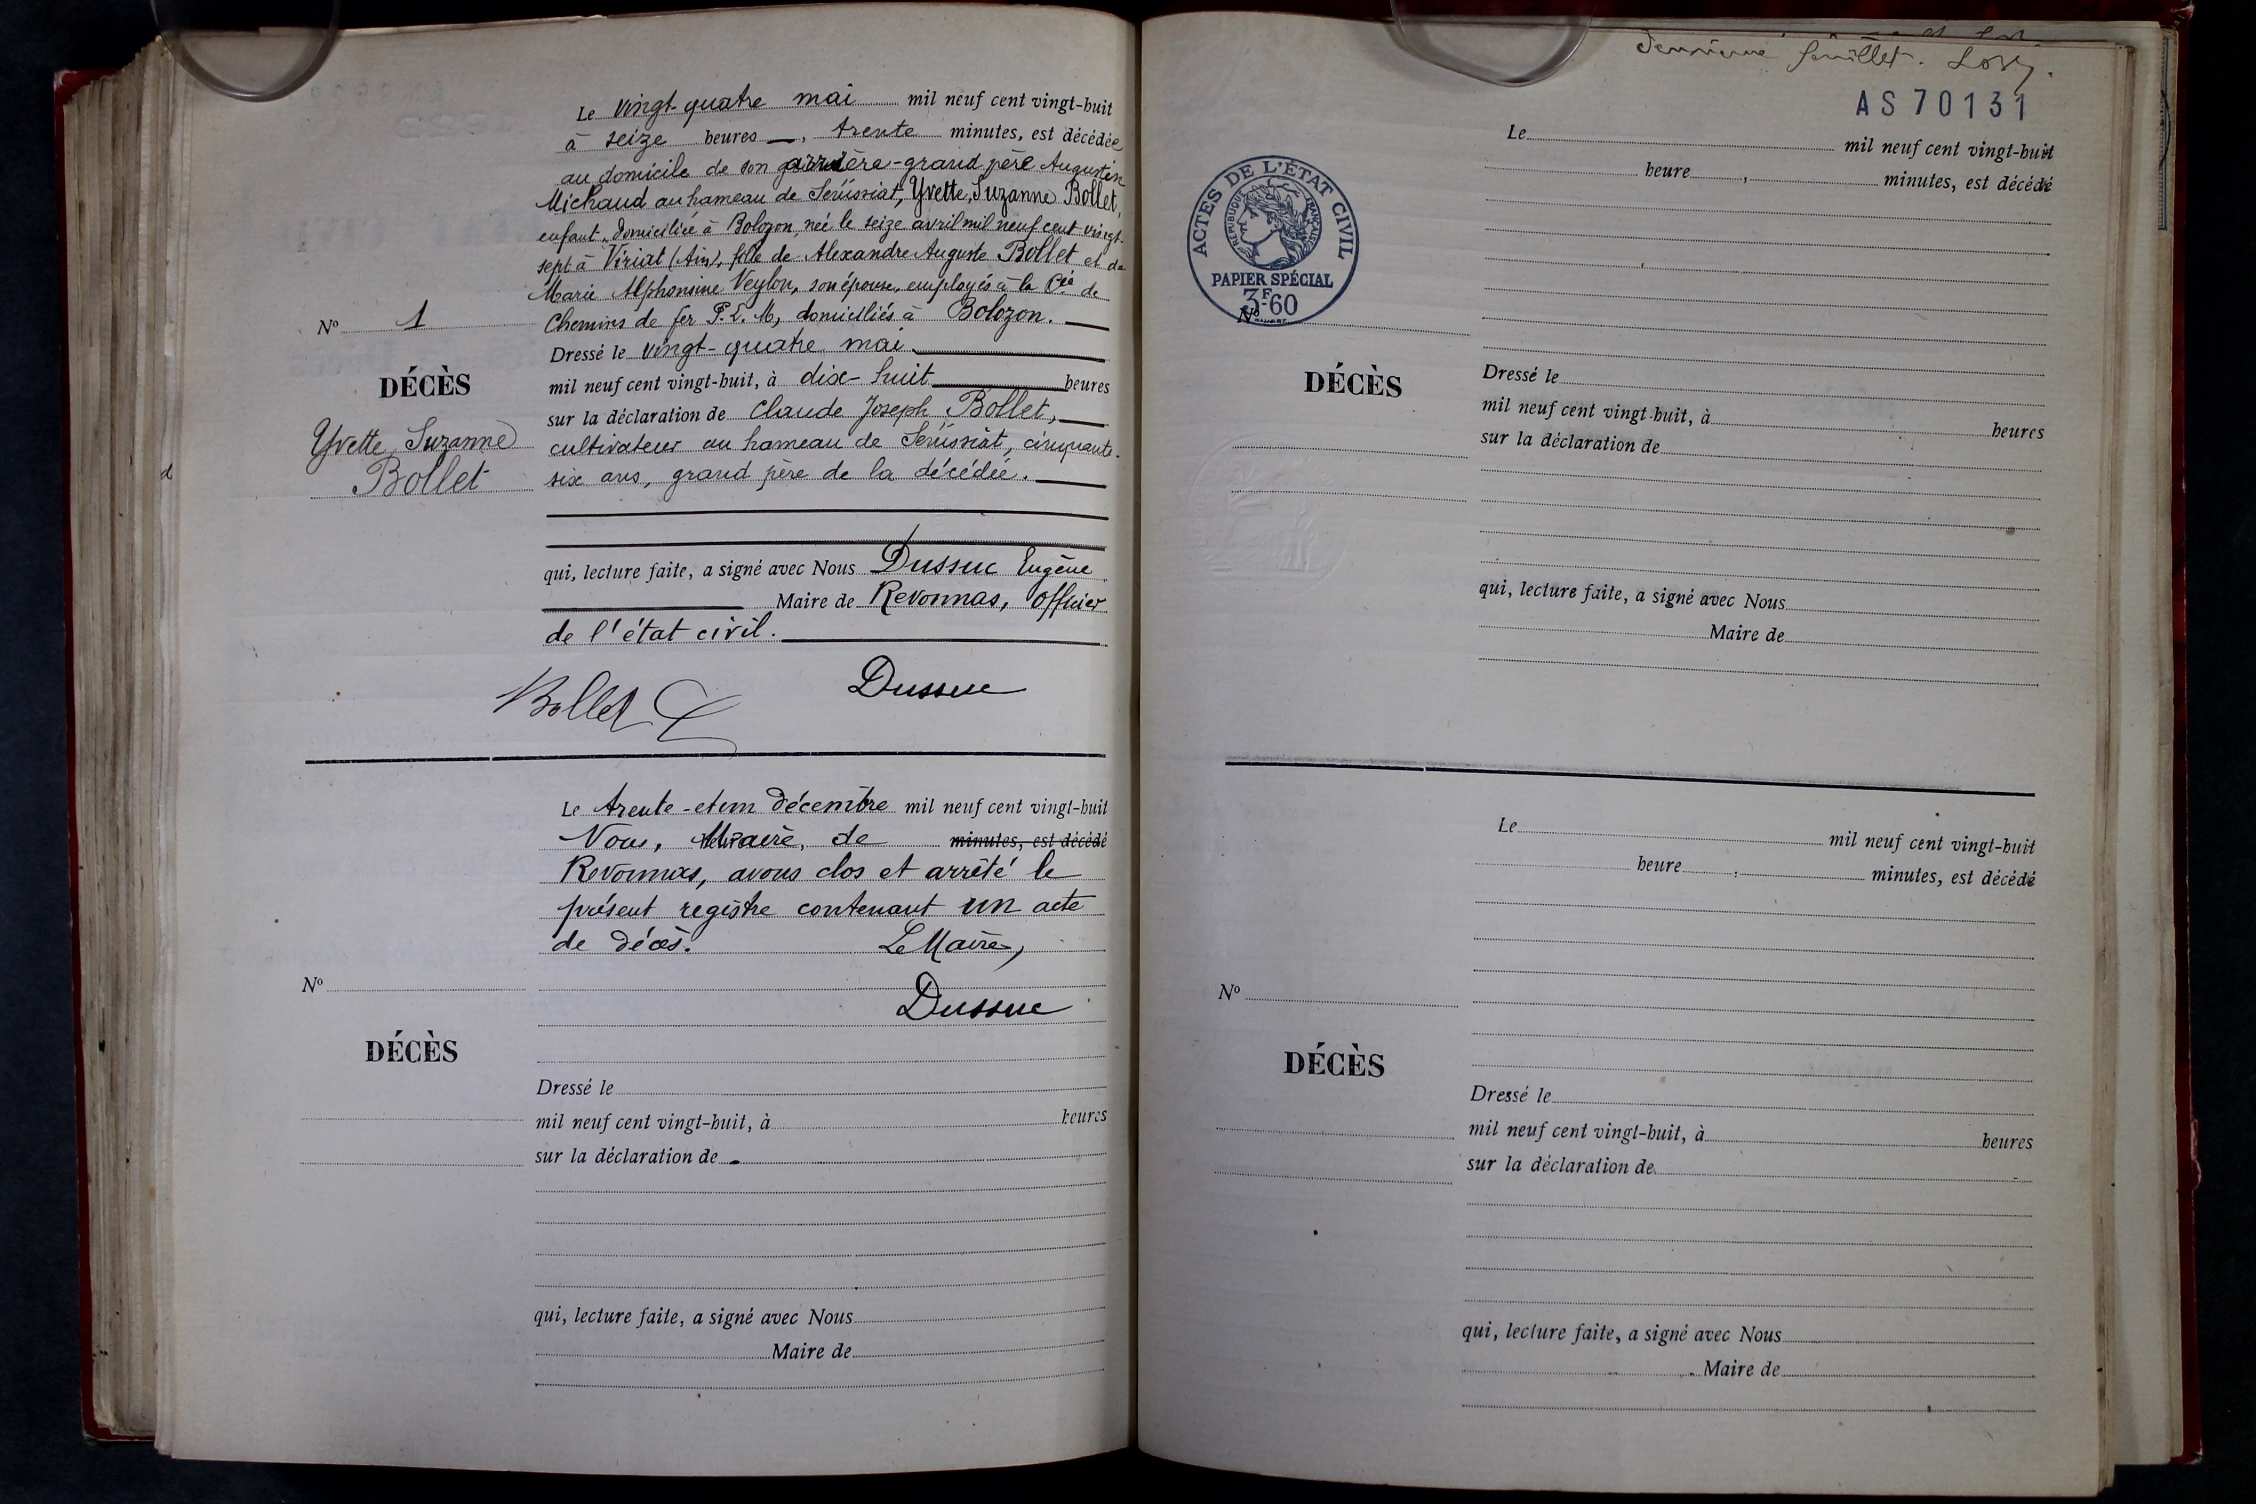 Le vingt-quatre mai mil neuf cent vingt-huit
à seize heures —, trente minutes, est décédée
au domicile de son arrière-grand père Augustin
Michaud au hameau de Senissiat, Yvette, Suzanne Bollet,
enfant, domiciliée à Bolozon, née le seize avril mil neuf cent vingt-
sept à Viriat (Ain), fille de Alexandre Auguste Bollet et de
Marie Alphonsine Veylon, son épouse, employés à la Cie de
Nº 1
Chemins de fer P. L. M, domiciliés à Bolozon.
Dressé le vingt-quatre mai
DÉCÈS
mil neuf cent vingt-huit, à dix-huit heures
sur la déclaration de Claude Joseph Bollet,
Yvette Suzanne
cultivateur au hameau de Senissiat, cinquante-
Bollet
six ans, grand père de la décédée.
qui, lecture faite, a signé avec Nous Dussuc Eugène
Maire de Revonnas, officier
de l'état civil.
Bollet
Dussuc
Le trente-et un décembre mil neuf cent vingt-huit
Nous, Maire, de minutes, est décédé
Revonnas, avons clos et arrêté le
présent registre contenant un acte
de décès. Le Maire,
Nº
Dussuc
DÉCÈS
Dressé le
mil neuf cent vingt-huit, à heures
sur la déclaration de
qui, lecture faite, a signé avec Nous
Maire de
feuillet.
AS 70131
Le mil neuf cent vingt-huit
heure , minutes, est décédé
ACTES DE L'ÉTAT CIVIL
RÉPUBLIQUE FRANÇAISE
PAPIER SPÉCIAL
3F-60
Nº
DÉCÈS
Dressé le
mil neuf cent vingt-huit, à heures
sur la déclaration de
qui, lecture faite, a signé avec Nous
Maire de
Le mil neuf cent vingt-huit
heure , minutes, est décédé
Nº
DÉCÈS
Dressé le
mil neuf cent vingt-huit, à heures
sur la déclaration de
qui, lecture faite, a signé avec Nous
Maire de